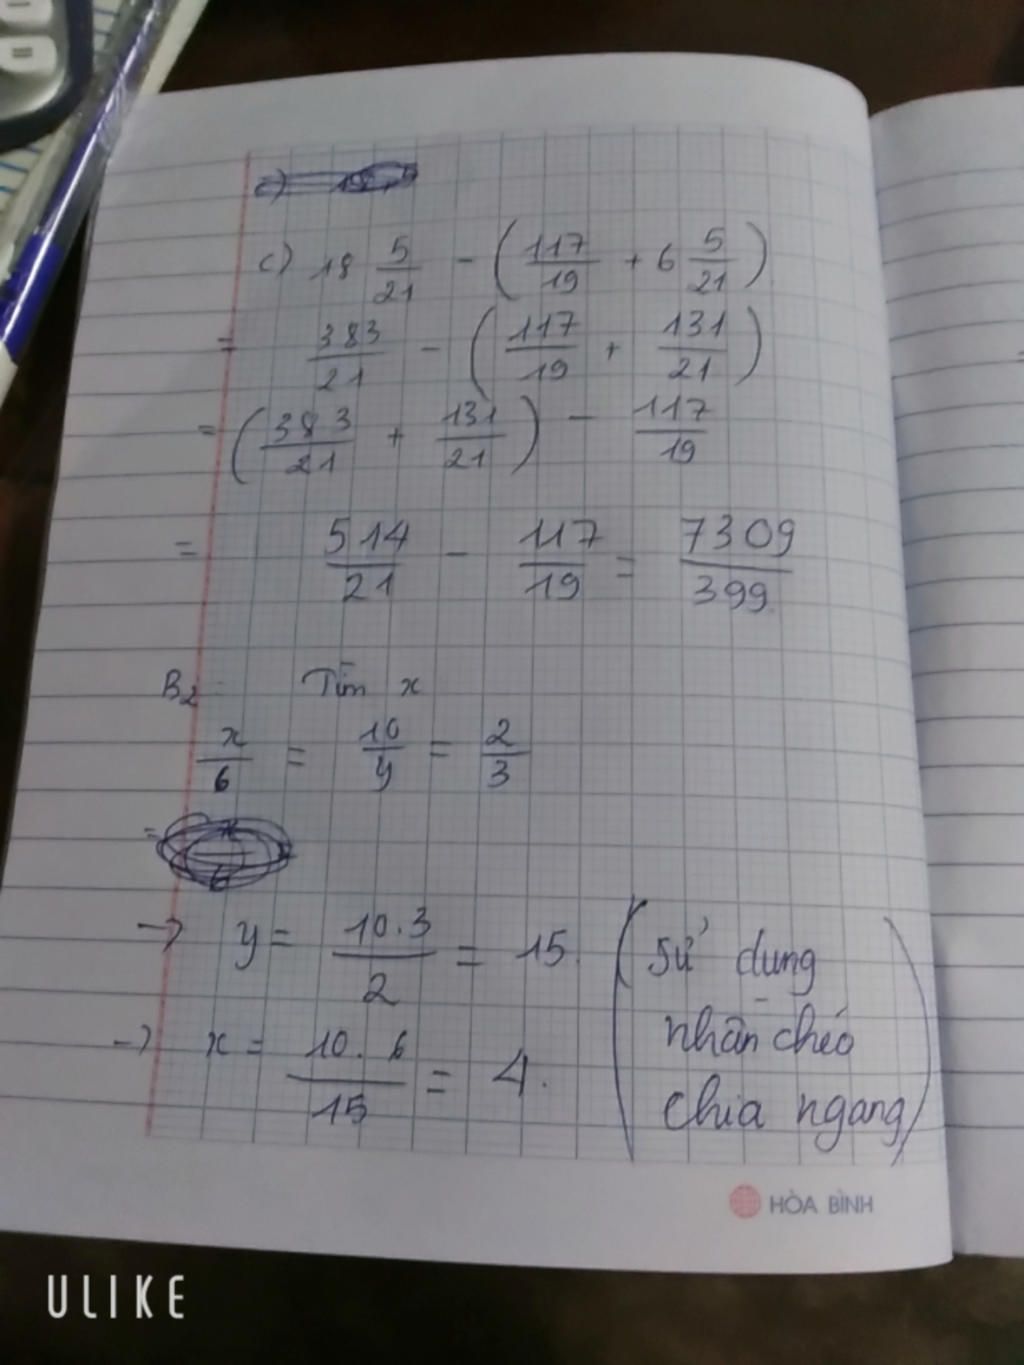 c) 18 5/21 - (117/19 + 6 5/21)
= 383/21 - (117/19 + 131/21)
= (383/21 + 131/21) - 117/19
= 514/21 - 117/19 = 7309/399
B2: Tìm x
x/6 = 10/y = 2/3
→ y = 10.3/2 = 15. (Sử dụng
nhân chéo
chia ngang)
→ x = 10.6/15 = 4.
HÒA BÌNH
ULIKE